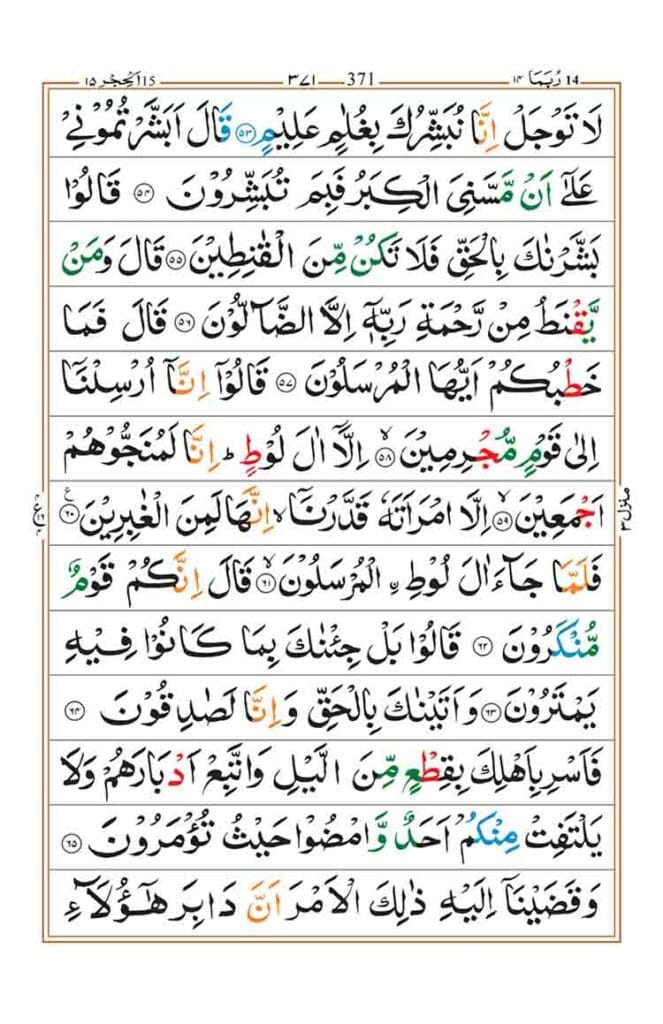 ١٥ اَلْحِجْر 15 ٣٧١ 371 رُبَمَا ١٤ 14
لَا تَوْجَلْ اِنَّا نُبَشِّرُكَ بِغُلٰمٍ عَلِيْمٍ ﴿٥٣﴾ قَالَ اَبَشَّرْتُمُوْنِيْ
عَلٰٓى اَنْ مَّسَّنِيَ الْكِبَرُ فَبِمَ تُبَشِّرُوْنَ ﴿٥٤﴾ قَالُوْا
بَشَّرْنٰكَ بِالْحَقِّ فَلَا تَكُنْ مِّنَ الْقٰنِطِيْنَ ﴿٥٥﴾ قَالَ وَمَنْ
يَّقْنَطُ مِنْ رَّحْمَةِ رَبِّهٖٓ اِلَّا الضَّآلُّوْنَ ﴿٥٦﴾ قَالَ فَمَا
خَطْبُكُمْ اَيُّهَا الْمُرْسَلُوْنَ ﴿٥٧﴾ قَالُوْٓا اِنَّآ اُرْسِلْنَآ
اِلٰى قَوْمٍ مُّجْرِمِيْنَ ﴿٥٨﴾ۙ اِلَّآ اٰلَ لُوْطٍ ؕ اِنَّا لَمُنَجُّوْهُمْ
اَجْمَعِيْنَ ﴿٥٩﴾ۙ اِلَّا امْرَاَتَهٗ قَدَّرْنَآ ۙ اِنَّهَا لَمِنَ الْغٰبِرِيْنَ ﴿٦٠﴾ ع
فَلَمَّا جَآءَ اٰلَ لُوْطِ ۨ الْمُرْسَلُوْنَ ﴿٦١﴾ۙ قَالَ اِنَّكُمْ قَوْمٌ
مُّنْكَرُوْنَ ﴿٦٢﴾ قَالُوْا بَلْ جِئْنٰكَ بِمَا كَانُوْا فِيْهِ
يَمْتَرُوْنَ ﴿٦٣﴾ وَاَتَيْنٰكَ بِالْحَقِّ وَاِنَّا لَصٰدِقُوْنَ ﴿٦٤﴾
فَاَسْرِ بِاَهْلِكَ بِقِطْعٍ مِّنَ الَّيْلِ وَاتَّبِعْ اَدْبَارَهُمْ وَلَا
يَلْتَفِتْ مِنْكُمْ اَحَدٌ وَّامْضُوْا حَيْثُ تُؤْمَرُوْنَ ﴿٦٥﴾
وَقَضَيْنَآ اِلَيْهِ ذٰلِكَ الْاَمْرَ اَنَّ دَابِرَ هٰٓؤُلَآءِ
منزل ٣